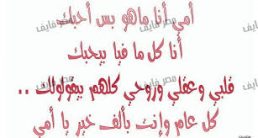 أمي أنا ماهو بس أحبك
أنا كل ما فيا بيحبك
قلبي وعقلي وروحي كلهم بيقولولك ..
كل عام وإنت بألف خير يا أمي